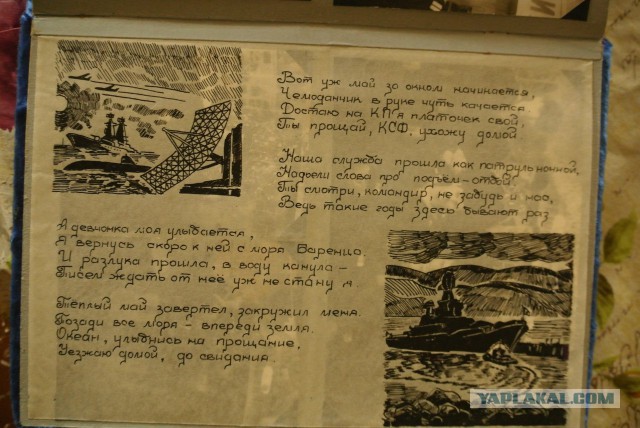 Вот уж май за окном начинается,
Чемоданчик в руке чуть качается.
Достаю на КП я платочек свой,
Ты прощай, КСФ, ухожу домой
Наша служба прошла как патруль ночной,
Надоели слова про подъём-отбой
Ты смотри, командир, не забудь и нас,
Ведь такие годы здесь бывают раз
А девчонка моя улыбается,
Я вернусь скоро к ней с моря Баренца.
И разлука прошла, в воду канула -
Писем ждать от неё уж не стану я
Теплый май завертел, закружил меня.
Позади все моря - впереди земля.
Океан, улыбнись на прощание,
Уезжаю домой, до свидания.
YAPLAKAL.COM